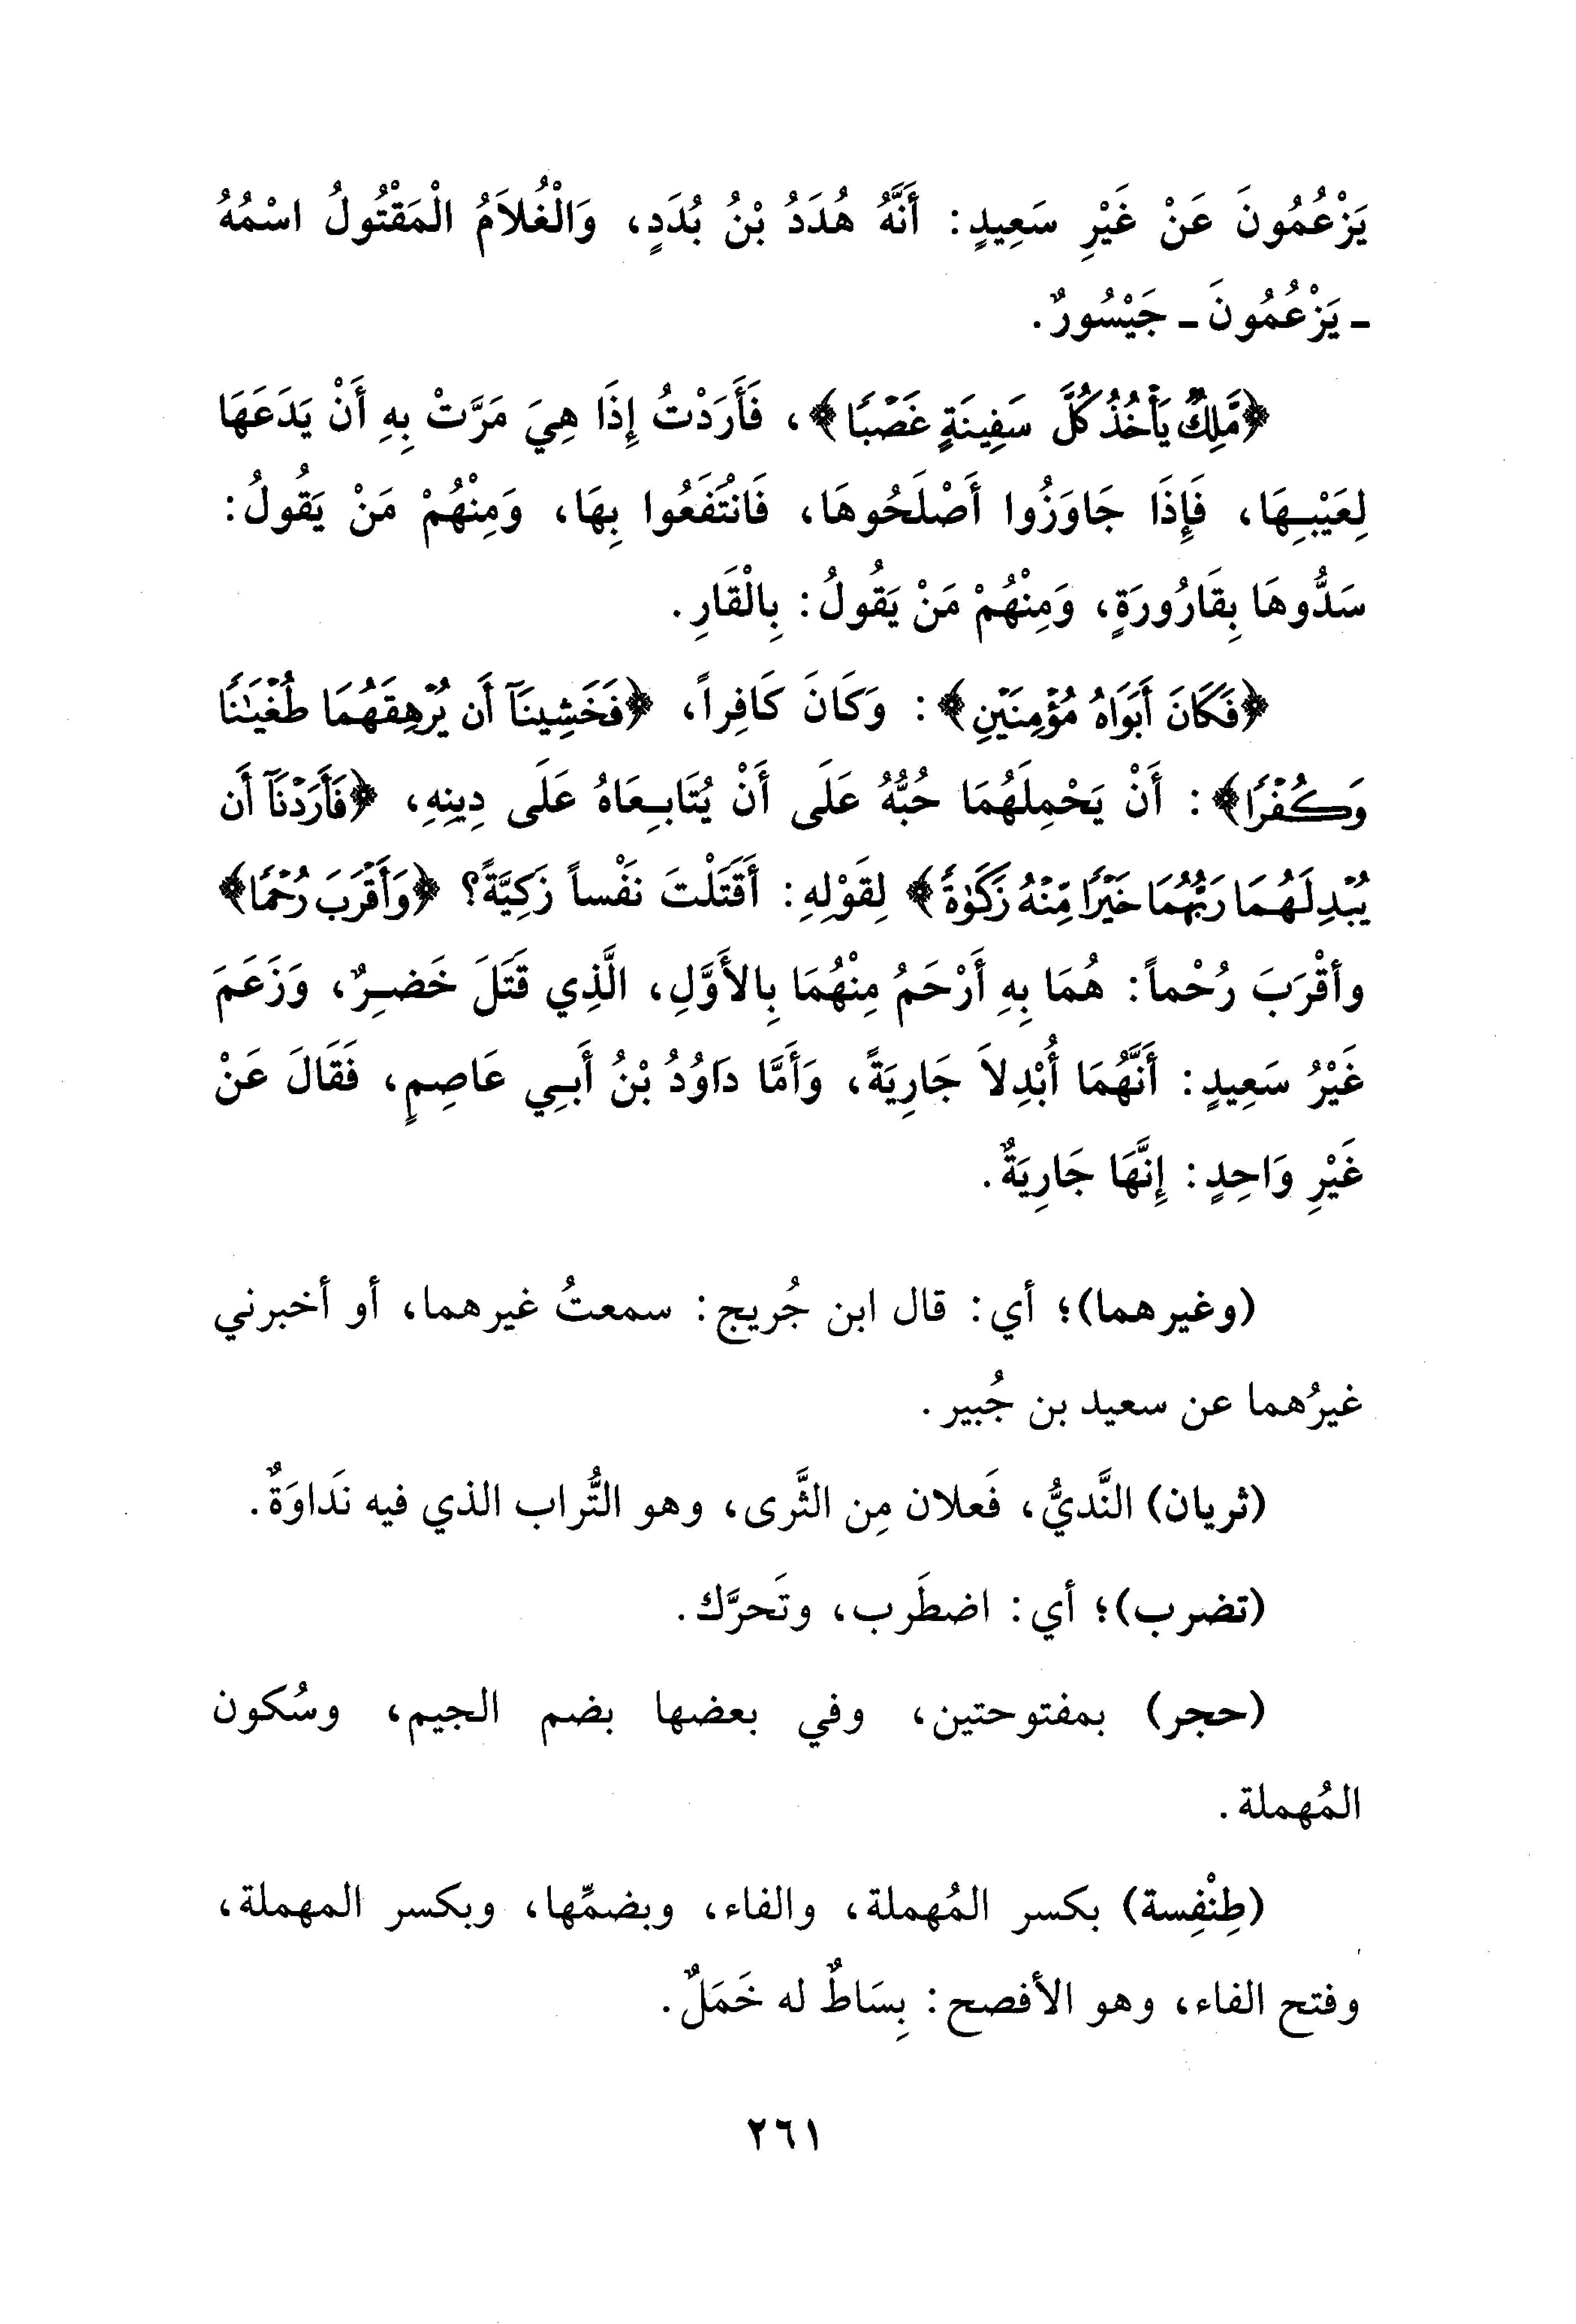 يَزْعُمُونَ عَنْ غَيْرِ سَعِيدٍ: أَنَّهُ هُدَدُ بْنُ بُدَدٍ، وَالْغُلاَمُ الْمَقْتُولُ اسْمُهُ
ـ يَزْعُمُونَ ـ جَيْسُورٌ.
﴿مَّلِكٌ يَأْخُذُ كُلَّ سَفِينَةٍ غَصْبًا﴾، فَأَرَدْتُ إِذَا هِيَ مَرَّتْ بِهِ أَنْ يَدَعَهَا
لِعَيْبِهَا، فَإِذَا جَاوَزُوا أَصْلَحُوهَا، فَانْتُفَعُوا بِهَا، وَمِنْهُمْ مَنْ يَقُولُ:
سَدُّوهَا بِقَارُورَةٍ، وَمِنْهُمْ مَنْ يَقُولُ: بِالْقَارِ.
﴿فَكَانَ أَبَوَاهُ مُؤْمِنَيْنِ﴾: وَكَانَ كَافِراً، ﴿فَخَشِينَآ أَن يُرْهِقَهُمَا طُغْيَٰنًا
وَكُفْرًا﴾: أَنْ يَحْمِلَهُمَا حُبُّهُ عَلَى أَنْ يُتَابِعَاهُ عَلَى دِينِهِ، ﴿فَأَرَدْنَآ أَن
يُبْدِلَهُمَا رَبُّهُمَا خَيْرًا مِّنْهُ زَكَوٰةً﴾ لِقَوْلِهِ: أَقَتَلْتَ نَفْساً زَكِيَّةً؟ ﴿وَأَقْرَبَ رُحْمًا﴾
وأقْرَبَ رُحْماً: هُمَا بِهِ أَرْحَمُ مِنْهُمَا بِالأَوَّلِ، الَّذِي قَتَلَ خَضِرٌ، وَزَعَمَ
غَيْرُ سَعِيدٍ: أَنَّهُمَا أُبْدِلاَ جَارِيَةً، وَأَمَّا دَاوُدُ بْنُ أَبِي عَاصِمٍ، فَقَالَ عَنْ
غَيْرِ وَاحِدٍ: إِنَّهَا جَارِيَةٌ.
(وغيرهما)؛ أي: قال ابن جُريج: سمعتُ غيرهما، أو أخبرني
غيرُهما عن سعيد بن جُبير.
(ثريان) النَّديُّ، فَعلان مِن الثَّرى، وهو التُّراب الذي فيه نَداوَةٌ.
(تضرب)؛ أي: اضطَرب، وتَحرَّك.
(حجر) بمفتوحتين، وفي بعضها بضم الجيم، وسُكون
المُهملة.
(طِنْفِسة) بكسر المُهملة، والفاء، وبضمِّها، وبكسر المهملة،
وفتح الفاء، وهو الأفصح: بِسَاطٌ له خَمَلٌ.
٢٦١